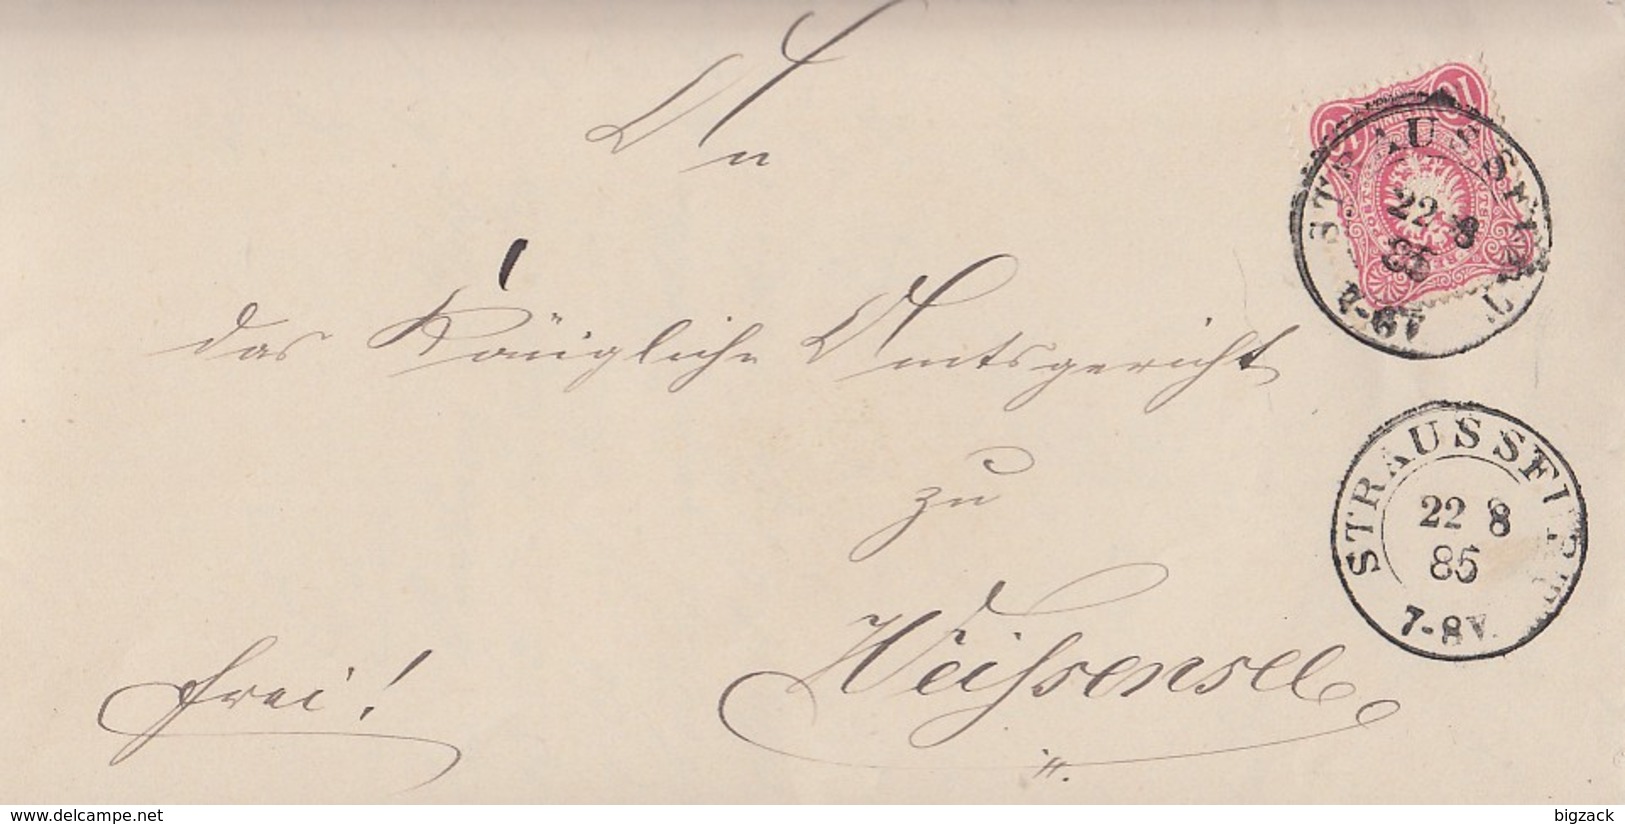 An
das Königliche Amtsgericht
zu
Weißensee
frei!
10 10
STRAUSSFU
22 8
85
7-8V
STRAUSSFURT
22 8
85
7-8V.
delcampe.net
bigzack